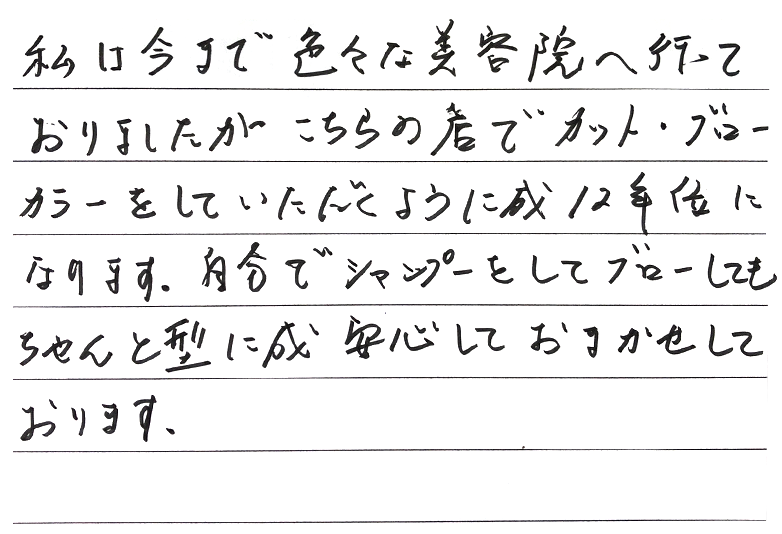 私は今まで色々な美容院へ行って
おりましたが こちらの店で カット・ブロー
カラーをしていただくように成 12年位に
なります。自分でシャンプーをしてブローしても
ちゃんと型に成 安心しておまかせして
おります、